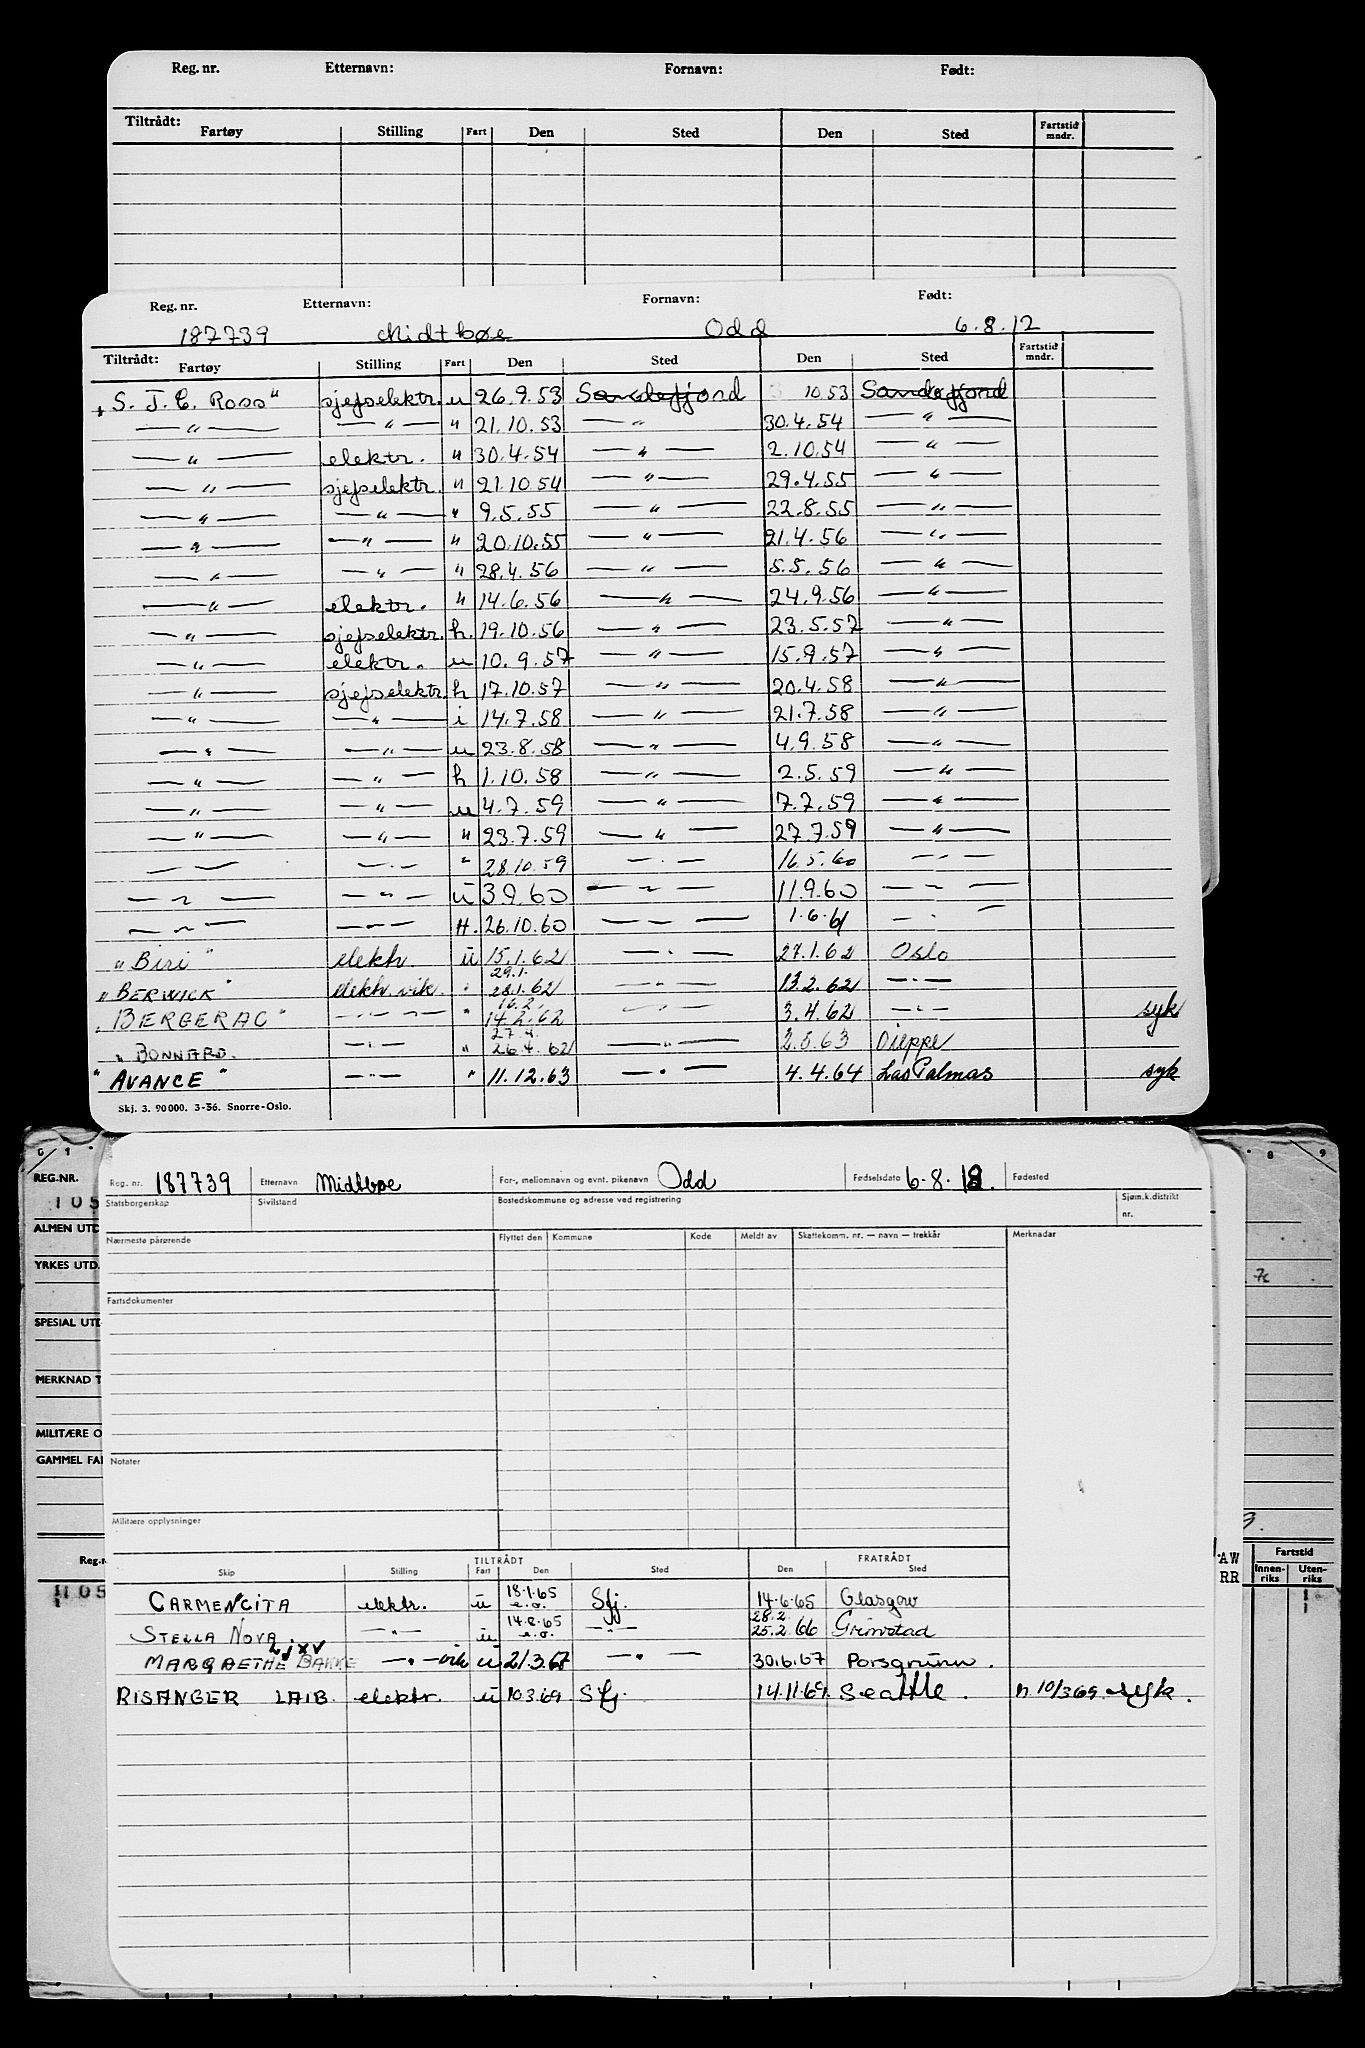 Reg. nr. Etternavn: Fornavn: Født:
Tiltrådt:
Fartøy Stilling Fart Den Sted Den Sted Fartstid mndr.
Reg. nr. Etternavn: Fornavn: Født:
187739 Midtbøe Odd 6.8.12
Tiltrådt:
Fartøy Stilling Fart Den Sted Den Sted Fartstid mndr.
"S. J. E. Ross" sjefselektr. u 26.9.53 Sandefjord 10.53 Sandefjord
—"— —"— " 21.10.53 —"— 30.4.54 —"—
—"— elektr. " 30.4.54 —"— 2.10.54 —"—
—"— sjefselektr. " 21.10.54 —"— 29.4.55 —"—
—"— —"— " 9.5.55 —"— 22.8.55 —"—
—"— —"— " 20.10.55 —"— 21.4.56 —"—
—"— —"— " 28.4.56 —"— 5.5.56 —"—
—"— elektr. " 14.6.56 —"— 24.9.56 —"—
—"— sjefselektr. h. 19.10.56 —"— 23.5.57 —"—
—"— elektr. u 10.9.57 —"— 15.9.57 —"—
—"— sjefselektr. h 17.10.57 —"— 20.4.58 —"—
—"— —"— i 14.7.58 —"— 21.7.58 —"—
—"— —"— u 23.8.58 —"— 4.9.58 —"—
—"— —"— h 1.10.58 —"— 2.5.59 —"—
—"— —"— u 4.7.59 —"— 7.7.59 —"—
—"— —"— " 23.7.59 —"— 27.7.59 —"—
— — —.— " 28.10.59 —.— 16.5.60 —.—
—"— —"— u 3.9.60 —"— 11.9.60 —"—
—"— —"— H. 26.10.60 —"— 1.6.61 —.—
"Biri" elektr. u 15.1.62 —.— 27.1.62 Oslo
29.1.
"BERWICK" elektr. vik. " 28.1.62 —"— 13.2.62 —"—
16.2.
"BERGERAC" —"— " 14.2.62 —"— 3.4.62 —"— syk
27.4.
"BONNARD. —"— " 26.4.62 —"— 63 Dieppe
"AVANCE" —"— " 11.12.63 —"— 4.4.64 Las Palmas syk
Skj. 3. 90000. 3-56. Snorre-Oslo.
REG.NR.
105
ALMEN UTD
YRKES UTD.
SPESIAL UTD
MERKNAD T
MILITÆRE O
GAMMEL FA
Reg. nr. 187739 Etternavn Midtbøe For-, mellomnavn og evnt. pikenavn Odd Fødselsdato 6.8.12. Fødested
Statsborgerskap Sivilstand Bostedskommune og adresse ved registrering Sjøm.k.distrikt nr.
Nærmeste pårørende Flyttet den Kommune Kode Meldt av Skattekomm. nr. — navn — trekkår Merknadar
Fartsdokumenter
Notater
Militære opplysninger
TILTRÅDT FRATRÅDT
Skip Stilling Fart Den Sted Den Sted
CARMENCITA elektr. u 18.1.65 e.o. Sfj. 14.6.65 Glasgow
STELLA NOVA —"— u 14.8.65 e.o. —"— 28.2. 25.2.66 Grimstad
LJXV
MARGRETHE BAKKE —"— vik u 21.3.67 —"— 30.6.67 Porsgrunn.
RISANGER LAIB. elektr. u 10.3.69 Sfj. 14.11.69. Seattle. n. 10/3 69 syk.
AW
RR
Fartstid
Innen-riks Uten-riks